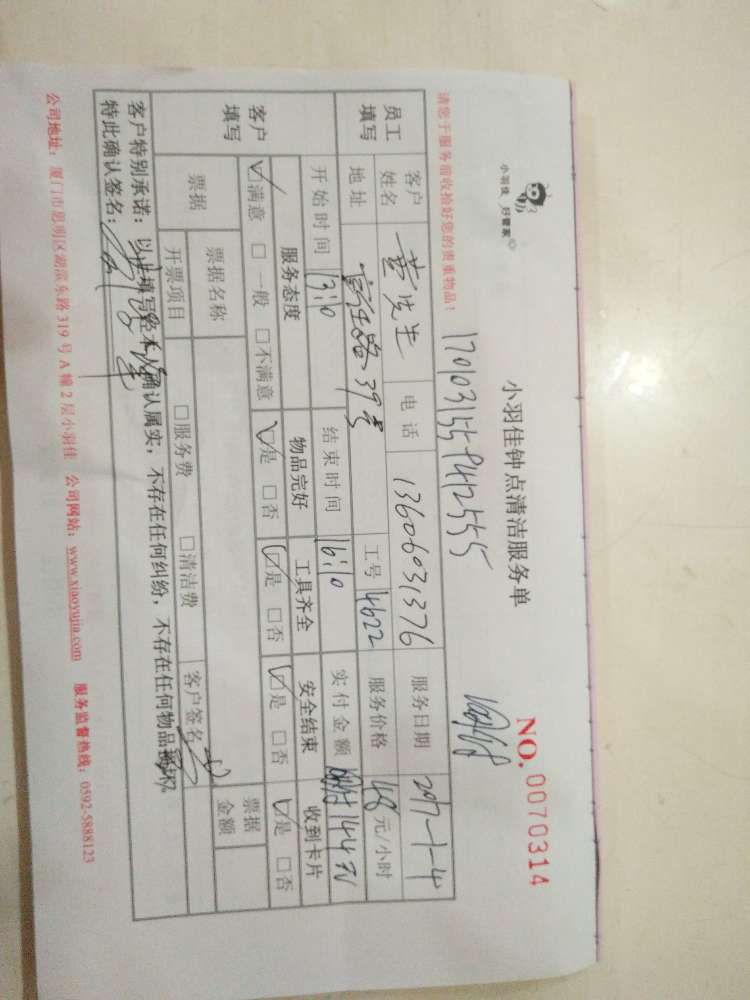 小羽佳 好管家
小羽佳钟点清洁服务单
NO. 0070314
170103155942555
请您于服务前收拾好您的贵重物品！
员工填写
客户姓名 黄先生 电话 13606031376 服务日期 2017-1-4
地址 39号 工号 4622 服务价格 48 元/小时
开始时间 13:10 结束时间 16:10 实付金额 144元
客户填写
服务态度 物品完好 工具齐全 安全结束 收到卡片
☑满意 □一般 □不满意 ☑是 □否 ☑是 □否 ☑是 □否 ☑是 □否
票据 票据名称 客户签名 票据金额
开票项目 □服务费 □清洁费
客户特别承诺：以上填写经本人确认属实，不存在任何纠纷，不存在任何物品损坏
特此确认签名：
公司地址：厦门市思明区湖滨东路319号A幢2层小羽佳 公司网站：www.xiaoyujia.com 服务监督热线：0592-5888123